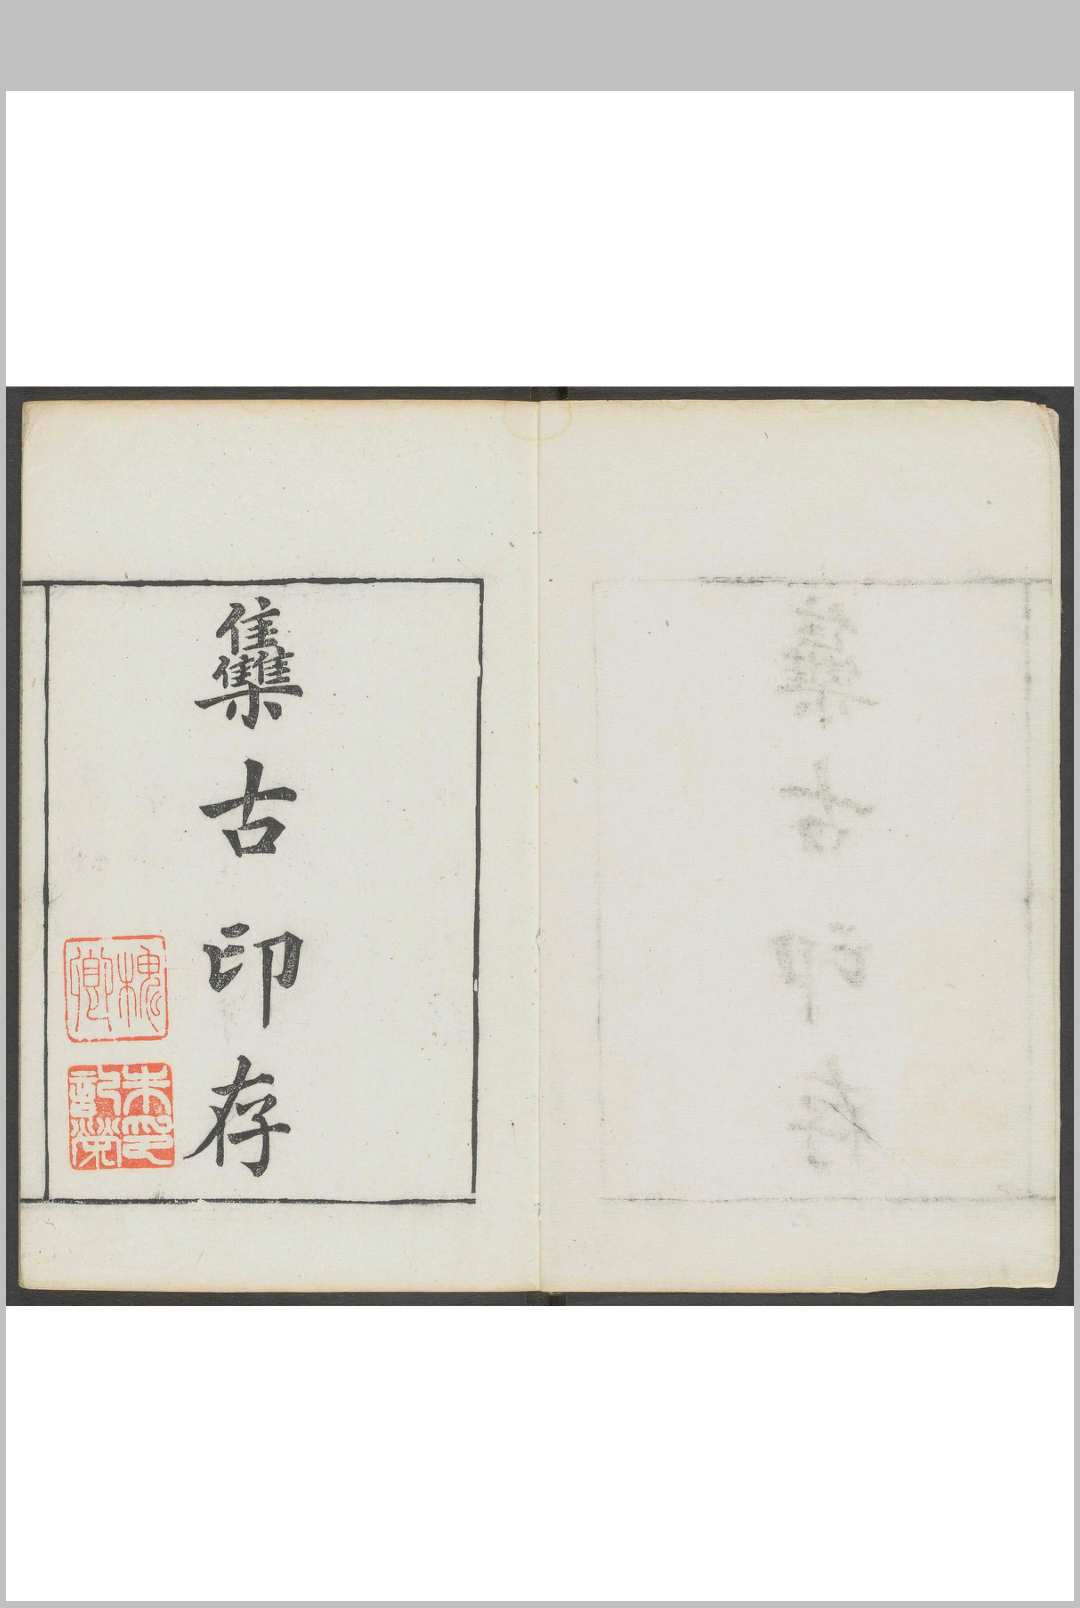 雧古印存